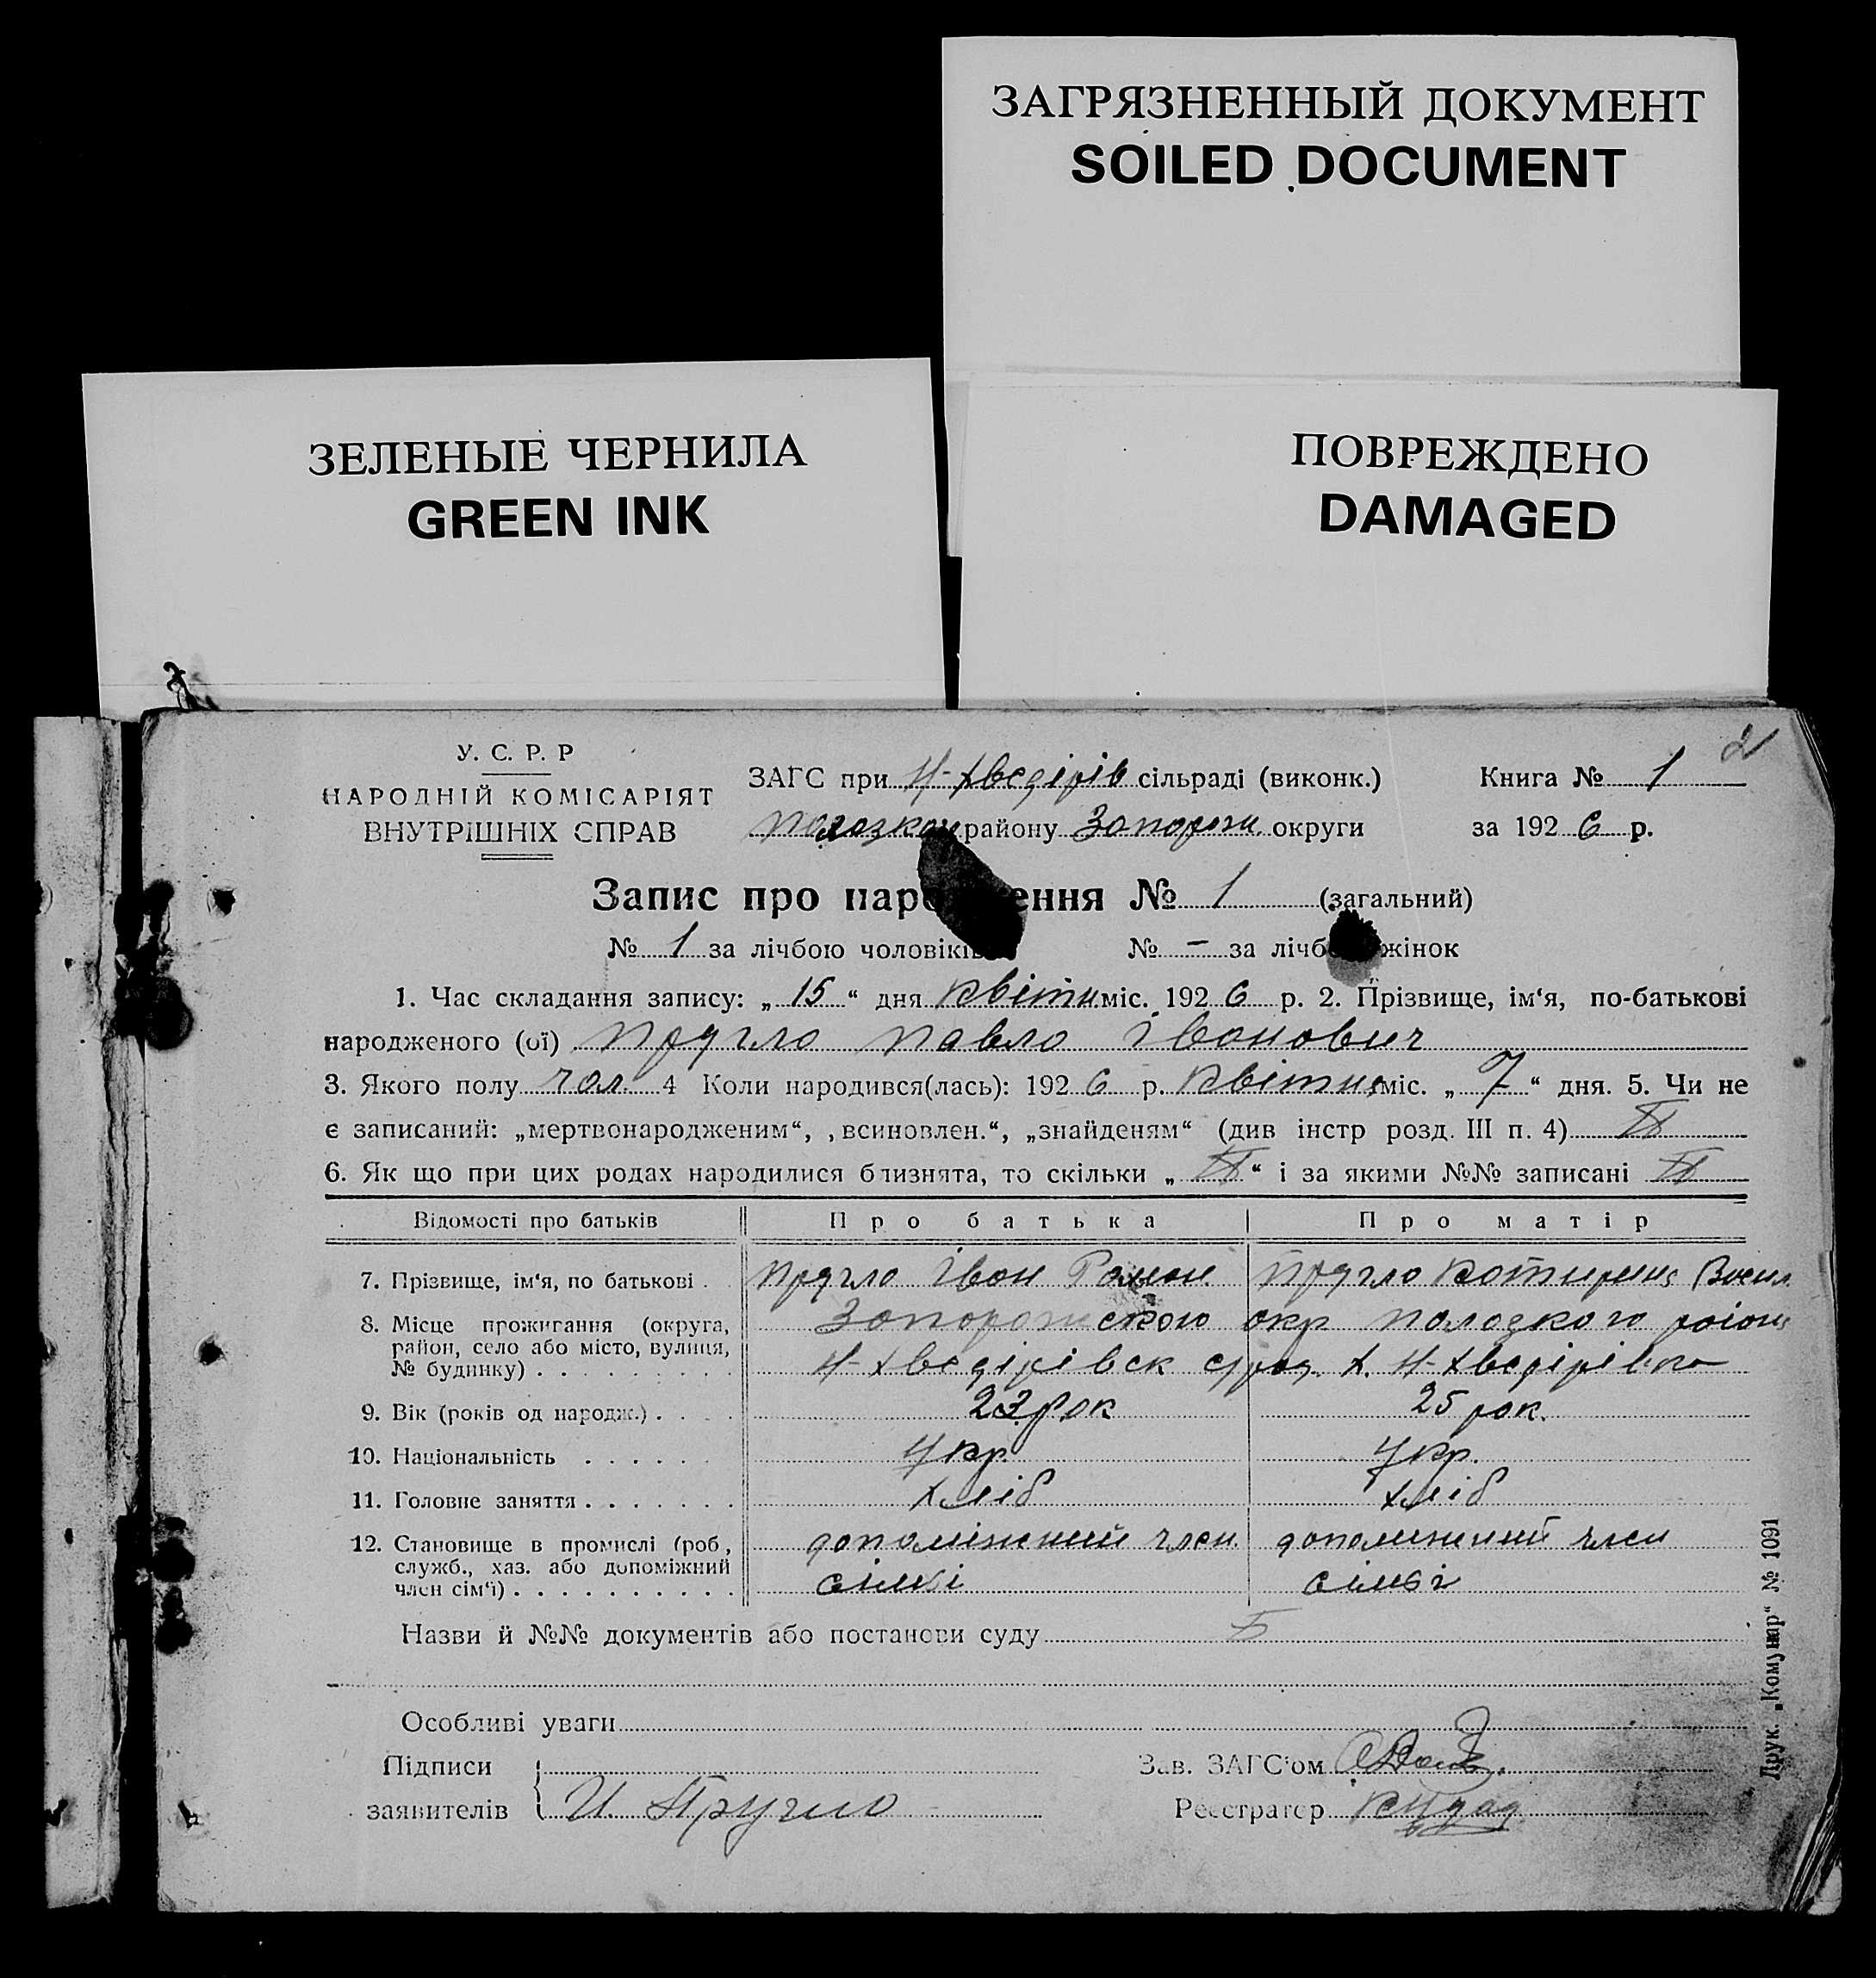 ЗАГРЯЗНЕННЫЙ ДОКУМЕНТ
SOILED DOCUMENT
ЗЕЛЕНЫЕ ЧЕРНИЛА
GREEN INK
ПОВРЕЖДЕНО
DAMAGED
2
У. С. Р. Р
НАРОДНІЙ КОМІСАРІЯТ
ВНУТРІШНІХ СПРАВ
ЗАГС при Н-Хведірів сільраді (виконк.)
району Запорізьк округи
Книга № 1
за 1926 р.
Запис про народження № 1 (загальний)
№ 1 за лічбою чоловіків № - за лічбою жінок
1. Час складання запису: „15“ дня Квітня міс. 1926 р. 2. Прізвище, ім‘я, по-батькові
народженого (ої) Пругло Павло Іванович
3. Якого полу чол. 4 Коли народився(лась): 1926 р. Квітня міс. „7“ дня. 5. Чи не
є записаний: „мертвонародженим“, „всиновлен.“, „знайденям“ (див інстр розд. III п. 4)
6. Як що при цих родах народилися близнята, то скільки „ “ і за якими №№ записані
Відомості про батьків Про батька Про матір
7. Прізвище, ім‘я, по батькові Пругло Іван Роман Пругло Катирина Васил
8. Місце проживання (округа, район, село або місто, вулиця, № будинку) Запорожською окр Пологкого району
Н-Хведірівск сірад. х. Н-Хведірівка
9. Вік (років од народж.) 23 рок 25 рок.
10. Національність Укр. Укр.
11. Головне заняття Хліб Хліб
12. Становище в промислі (роб., служб., хаз. або допоміжний член сім‘ї) допоміжний член допоміжний член
сімьі сімьї
Назви й №№ документів або постанови суду
Особливі уваги
Підписи
заявителів И. Пругло
Зав. ЗАГС‘ом
Реєстратор
Друк. „Комунар“ № 1091